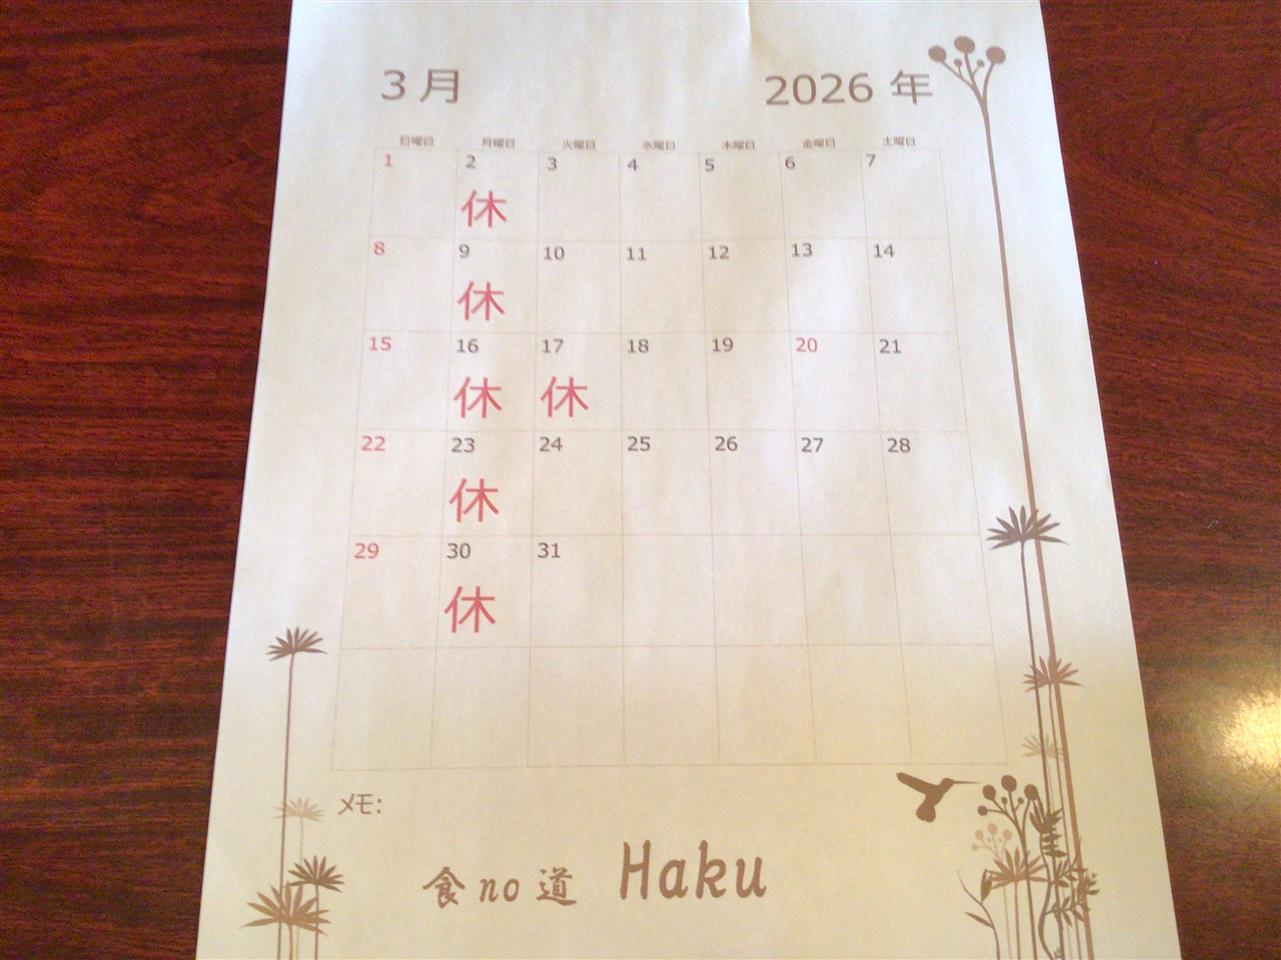 3月 2026 年
日曜日 月曜日 火曜日 水曜日 木曜日 金曜日 土曜日
1 2 3 4 5 6 7
休
8 9 10 11 12 13 14
休
15 16 17 18 19 20 21
休 休
22 23 24 25 26 27 28
休
29 30 31
休
メモ:
食no道 Haku